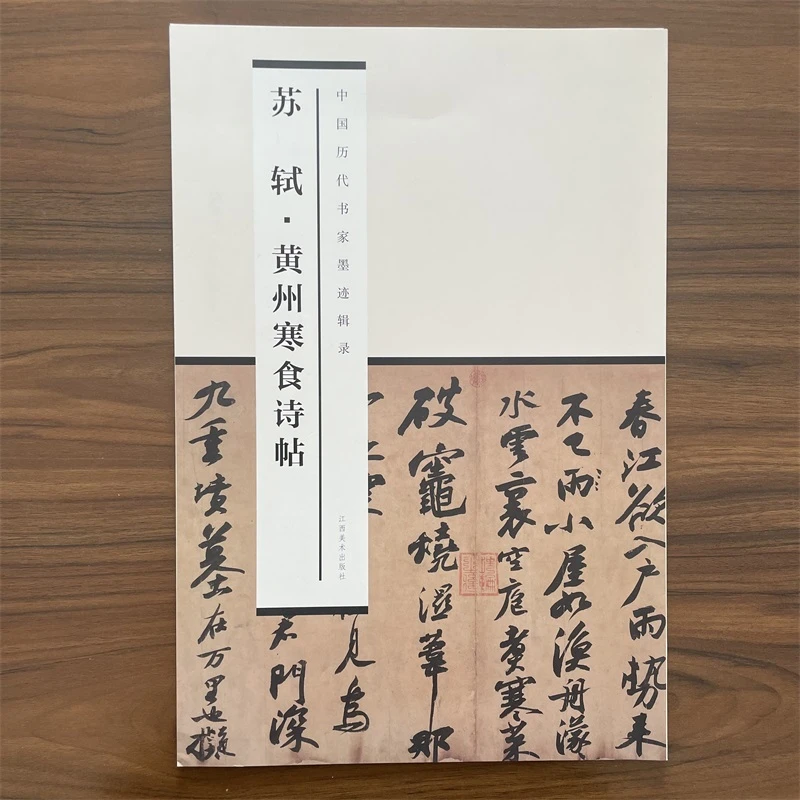 中国历代书家墨迹辑录
苏轼·黄州寒食诗帖
江西美术出版社
春江欲入戶雨勢来
不已雨小屋如漁舟濛
水雲裏空庖煮寒菜
破竈燒濕葦那
見烏
君門深
九重墳墓在万里也擬